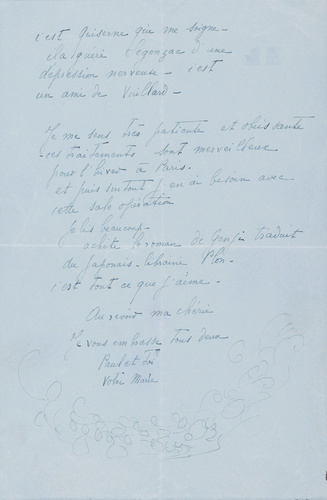 c'est Quiserne qui me soigne -
il a guéri Segonzac d'une
depression nerveuse - c'est
un ami de Vuillard -
Je me sens très patiente et obeissante
ces traitements sont merveilleux
pour l'hiver à Paris.
et puis surtout j'en ai besoin avec
cette sale opération
Je lis beaucoup -
achète le roman de Genji traduit
du japonais - librairie Plon -
c'est tout ce que j'aime -
Au revoir ma chérie
Je vous embrasse tous deux
Paul et toi
Votre Marie